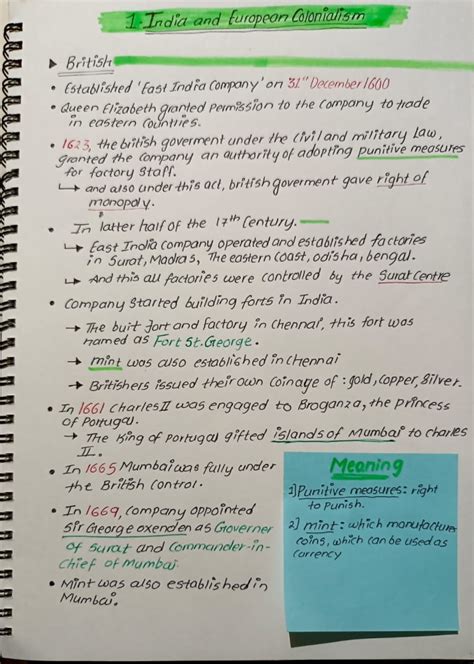 1. India and European Colonialism
▶ British
• Established 'East India Company' on 31st December 1600
• Queen Elizabeth granted Permission to the company to trade
in eastern Countries.
• 1623, the british goverment under the civil and military Law,
granted the company an authority of adopting punitive measures
for factory Staff.
↳ and also under this act, british goverment gave right of
monopoly.
• In latter half of the 17th Century.
↳ East India company operated and established factories
in Surat, Madras, The eastern coast, odisha, bengal.
↳ And this all factories were controlled by the Surat Centre
• Company Started building forts in India.
→ The buirt fort and factory in chennai, this fort was
named as Fort St. George.
→ mint was also established in chennai
→ Britishers issued their own Coinage of : gold, copper, Silver.
• In 1661 Charles II was engaged to Broganza, the Princess
of Portugal.
→ The King of Portugal gifted islands of Mumbai to charles
II.
• In 1665 Mumbai was fully under
the British Control.
• In 1669, company appointed
Sir George oxenden as Groverner
of Surat and Commander-in-
Chief of Mumbai
• Mint was also established in
Mumbai.
Meaning
1) Punitive measures: right
to Punish.
2] mint: which manufacture
coins, which can be used as
currency